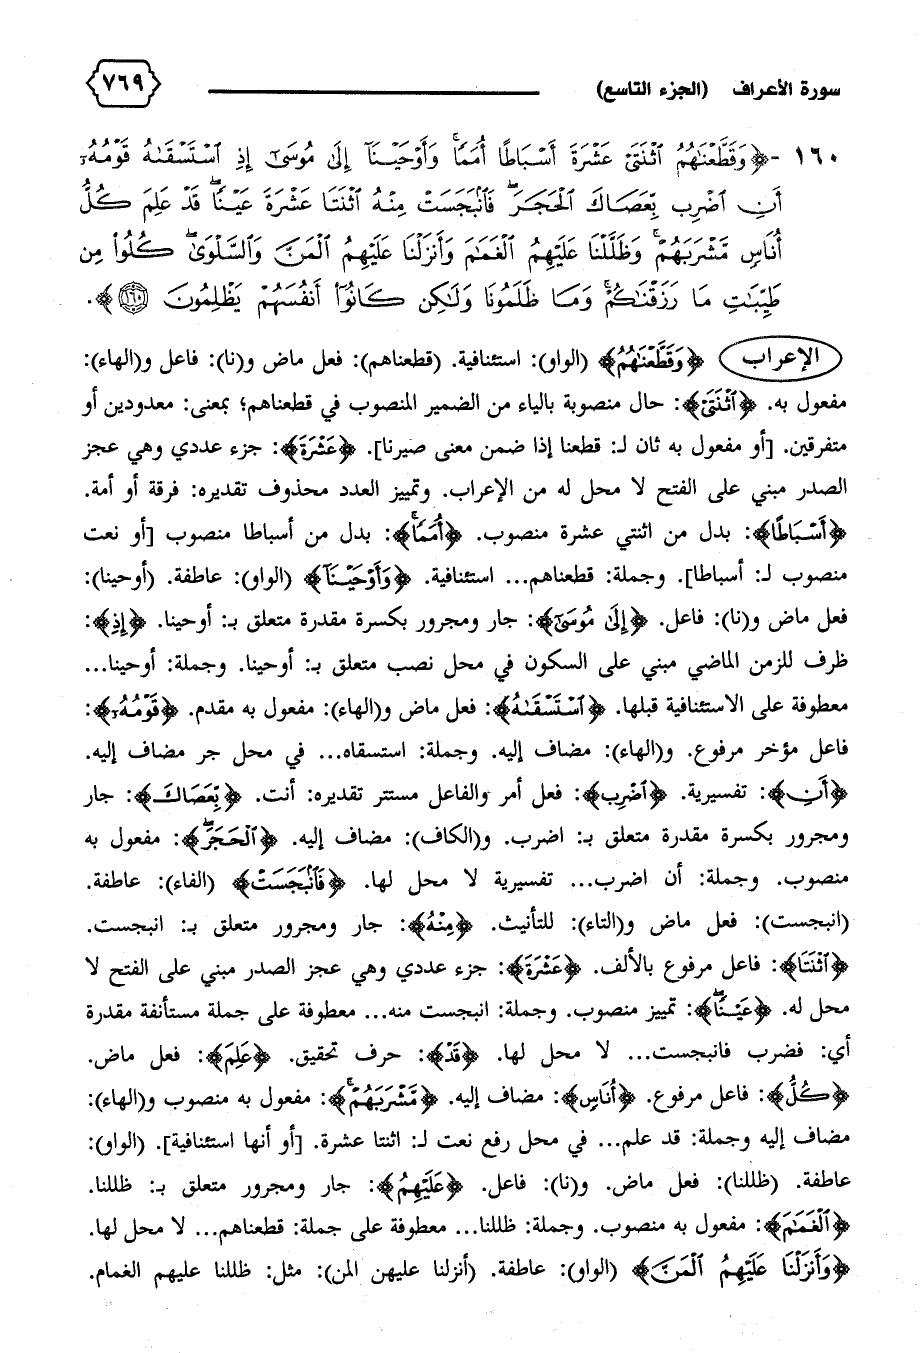 سورة الأعراف (الجزء التاسع) ٧٦٩
١٦٠ - ﴿وَقَطَّعْنَٰهُمُ ٱثْنَتَىْ عَشْرَةَ أَسْبَاطًا أُمَمًا ۚ وَأَوْحَيْنَآ إِلَىٰ مُوسَىٰٓ إِذِ ٱسْتَسْقَىٰهُ قَوْمُهُۥٓ
أَنِ ٱضْرِب بِّعَصَاكَ ٱلْحَجَرَ ۖ فَٱنۢبَجَسَتْ مِنْهُ ٱثْنَتَا عَشْرَةَ عَيْنًا ۖ قَدْ عَلِمَ كُلُّ
أُنَاسٍ مَّشْرَبَهُمْ ۚ وَظَلَّلْنَا عَلَيْهِمُ ٱلْغَمَٰمَ وَأَنزَلْنَا عَلَيْهِمُ ٱلْمَنَّ وَٱلسَّلْوَىٰ ۖ كُلُوا۟ مِن
طَيِّبَٰتِ مَا رَزَقْنَٰكُمْ ۚ وَمَا ظَلَمُونَا وَلَٰكِن كَانُوٓا۟ أَنفُسَهُمْ يَظْلِمُونَ ١٦٠﴾.
الإعراب ﴿وَقَطَّعْنَٰهُمُ﴾ (الواو): استئنافية. (قطعناهم): فعل ماض و(نا): فاعل و(الهاء):
مفعول به. ﴿ٱثْنَتَىْ﴾: حال منصوبة بالياء من الضمير المنصوب في قطعناهم؛ بمعنى: معدودين أو
متفرقين. [أو مفعول به ثان لـ: قطعنا إذا ضمن معنى صيرنا]. ﴿عَشْرَةَ﴾: جزء عددي وهي عجز
الصدر مبني على الفتح لا محل له من الإعراب. وتمييز العدد محذوف تقديره: فرقة أو أمة.
﴿أَسْبَاطًا﴾: بدل من اثنتي عشرة منصوب. ﴿أُمَمًا ۚ﴾: بدل من أسباطا منصوب [أو نعت
منصوب لـ: أسباطا]. وجملة: قطعناهم... استئنافية. ﴿وَأَوْحَيْنَآ﴾ (الواو): عاطفة. (أوحينا):
فعل ماض و(نا): فاعل. ﴿إِلَىٰ مُوسَىٰٓ﴾: جار ومجرور بكسرة مقدرة متعلق بـ: أوحينا. ﴿إِذِ﴾:
ظرف للزمن الماضي مبني على السكون في محل نصب متعلق بـ: أوحينا. وجملة: أوحينا...
معطوفة على الاستئنافية قبلها. ﴿ٱسْتَسْقَىٰهُ﴾: فعل ماض و(الهاء): مفعول به مقدم. ﴿قَوْمُهُۥٓ﴾:
فاعل مؤخر مرفوع. و(الهاء): مضاف إليه. وجملة: استسقاه... في محل جر مضاف إليه.
﴿أَنِ﴾: تفسيرية. ﴿ٱضْرِب﴾: فعل أمر والفاعل مستتر تقديره: أنت. ﴿بِّعَصَاكَ﴾: جار
ومجرور بكسرة مقدرة متعلق بـ: اضرب. و(الكاف): مضاف إليه. ﴿ٱلْحَجَرَ ۖ﴾: مفعول به
منصوب. وجملة: أن اضرب... تفسيرية لا محل لها. ﴿فَٱنۢبَجَسَتْ﴾ (الفاء): عاطفة.
(انبجست): فعل ماض و(التاء): للتأنيث. ﴿مِنْهُ﴾: جار ومجرور متعلق بـ: انبجست.
﴿ٱثْنَتَا﴾: فاعل مرفوع بالألف. ﴿عَشْرَةَ﴾: جزء عددي وهي عجز الصدر مبني على الفتح لا
محل له. ﴿عَيْنًا ۖ﴾: تمييز منصوب. وجملة: انبجست منه... معطوفة على جملة مستأنفة مقدرة
أي: فضرب فانبجست... لا محل لها. ﴿قَدْ﴾: حرف تحقيق. ﴿عَلِمَ﴾: فعل ماض.
﴿كُلُّ﴾: فاعل مرفوع. ﴿أُنَاسٍ﴾: مضاف إليه. ﴿مَّشْرَبَهُمْ ۚ﴾: مفعول به منصوب و(الهاء):
مضاف إليه وجملة: قد علم... في محل رفع نعت لـ: اثنتا عشرة. [أو أنها استئنافية]. (الواو):
عاطفة. (ظللنا): فعل ماض. و(نا): فاعل. ﴿عَلَيْهِمُ﴾: جار ومجرور متعلق بـ: ظللنا.
﴿ٱلْغَمَٰمَ﴾: مفعول به منصوب. وجملة: ظللنا... معطوفة على جملة: قطعناهم... لا محل لها.
﴿وَأَنزَلْنَا عَلَيْهِمُ ٱلْمَنَّ﴾ (الواو): عاطفة. (أنزلنا عليهن المن): مثل: ظللنا عليهم الغمام.